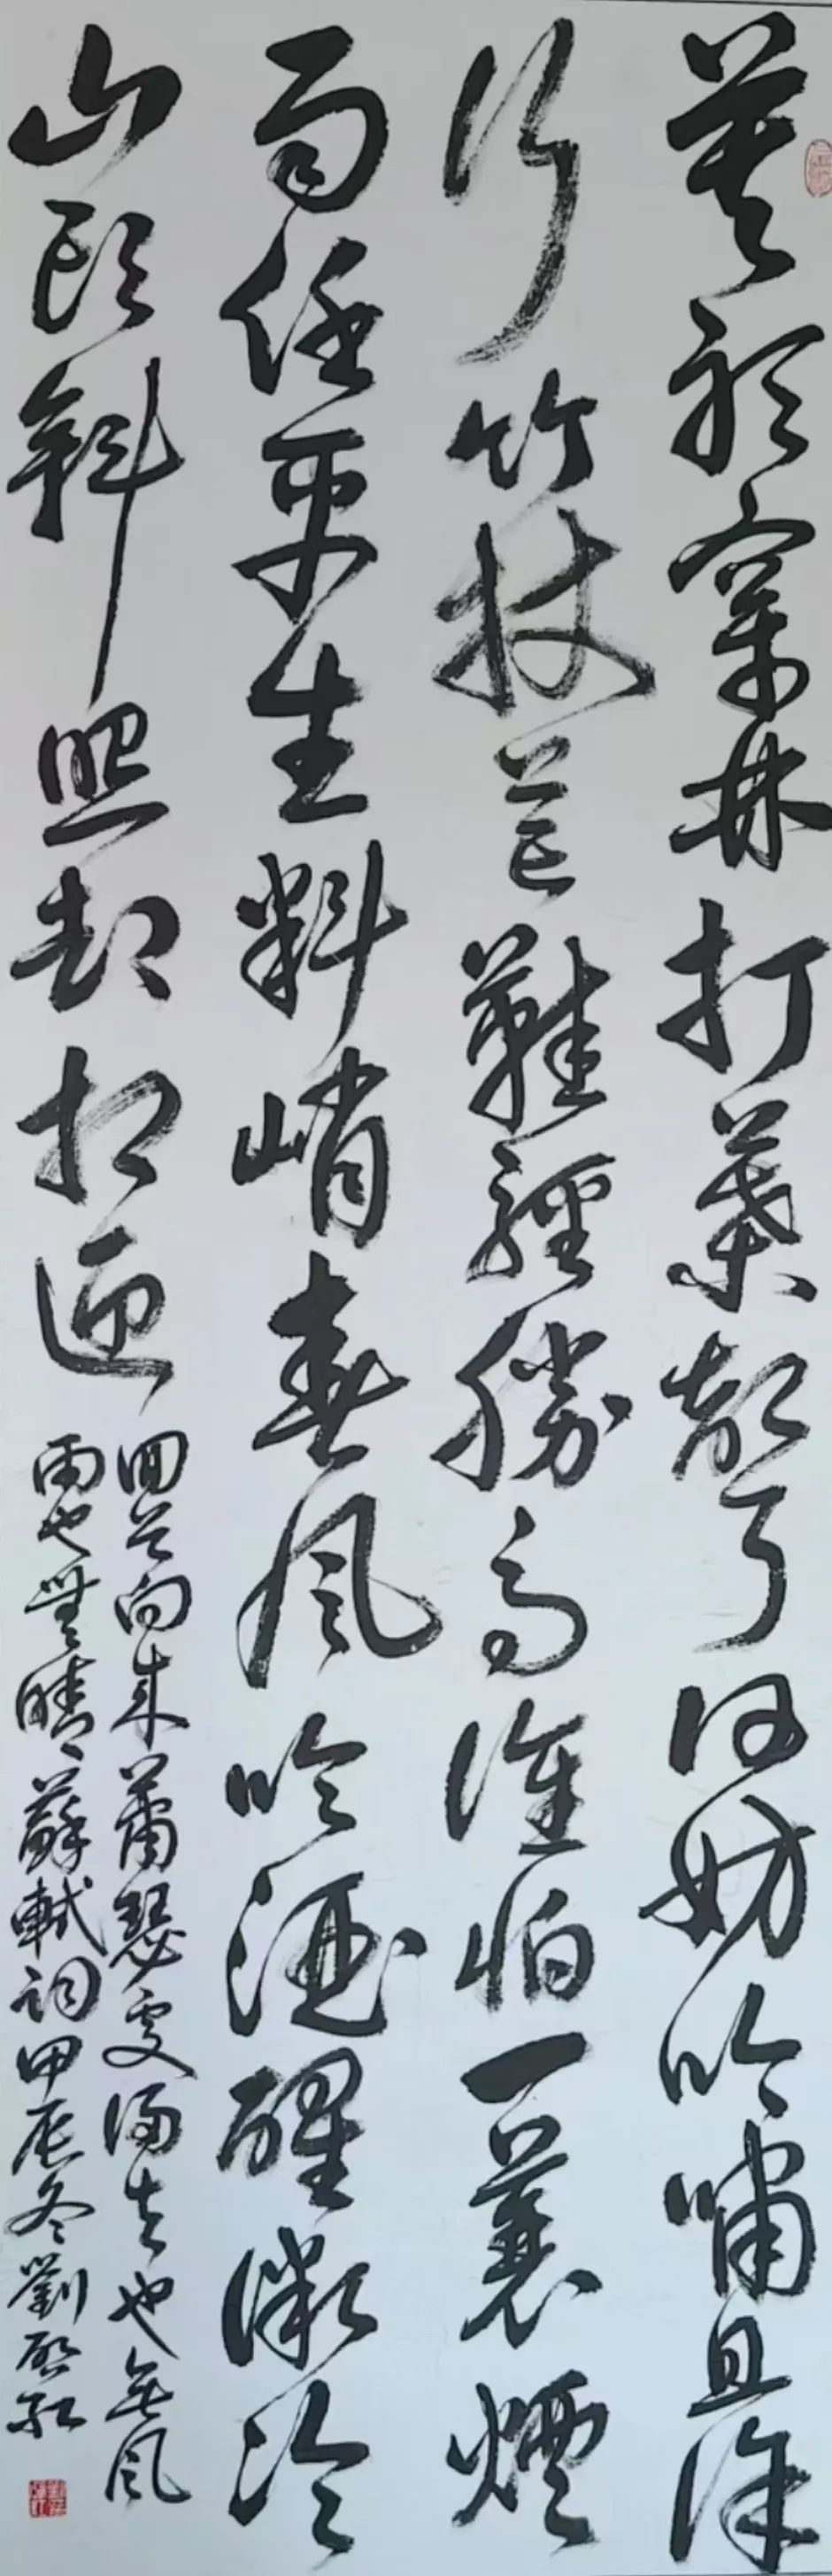 莫聽穿林打葉聲何妨吟嘯且徐
行竹杖芒鞋輕勝馬誰怕一蓑煙
雨任平生料峭春風吹酒醒微冷
山頭斜照却相迎
回首向來蕭瑟處歸去也無風
雨也無晴蘇軾詞甲辰冬劉